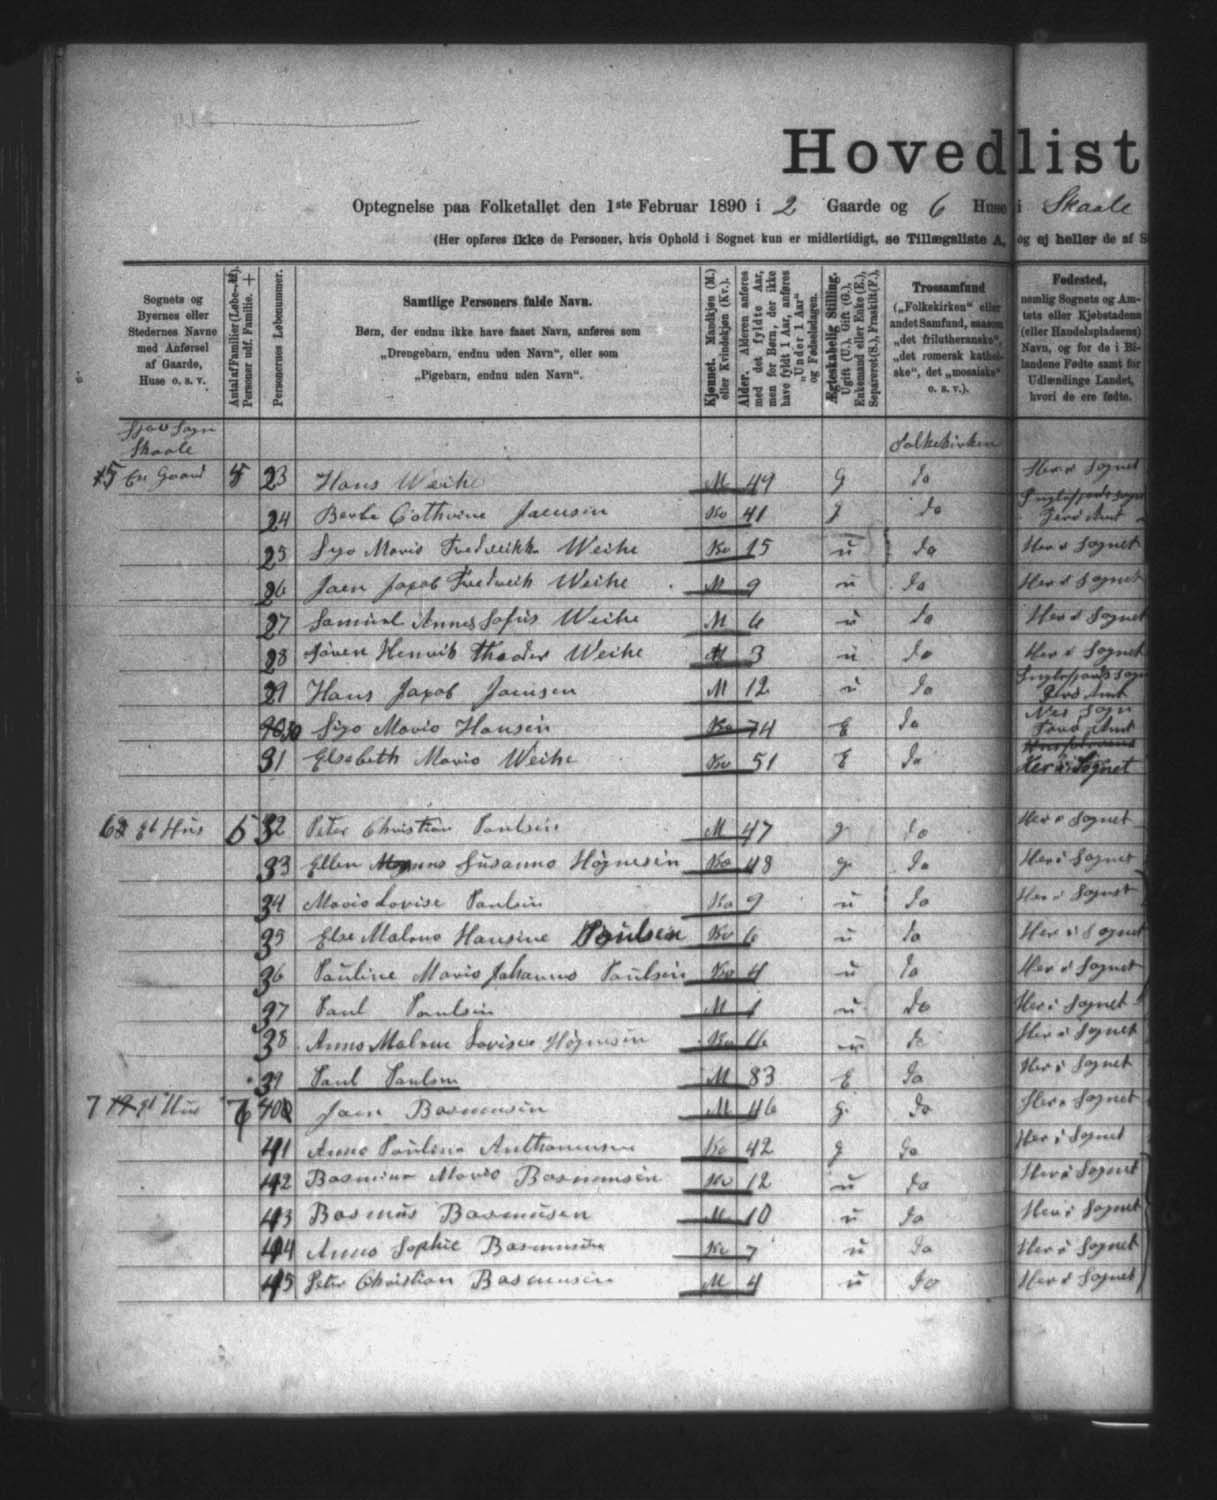 Hovedlist
Optegnelse paa Folketallet den 1ste Februar 1890 i 2 Gaarde og 6 Huse i Skaale
(Her opføres ikke de Personer, hvis Ophold i Sognet kun er midlertidigt, se Tillægsliste A, og ej heller de af S
Sognets og
Byernes eller
Stedernes Navne
med Anførsel
af Gaarde,
Huse o. s. v.
Antal af Familier (Løbe-№).
Personer udf. Familie. +
Personernes Løbenummer.
Samtlige Personers fulde Navn.
Børn, der endnu ikke have faaet Navn, anføres som
„Drengebarn, endnu uden Navn", eller som
„Pigebarn, endnu uden Navn".
Kjønnet. Mandkjøn (M.)
eller Kvindekjøn (Kv.).
Alder. Alderen anføres
med det fyldte Aar,
men for Børn, der ikke
have fyldt 1 Aar, anføres
„Under 1 Aar"
og Fødselsdagen.
Ægteskabelig Stilling.
Ugift (U.), Gift (G.),
Enkemand eller Enke (E.),
Separeret (S.), Fraskilt (F.).
Trossamfund
(„Folkekirken" eller
andet Samfund, saasom
„det frilutheranske",
„det romersk kathol-
ske", det „mosaiske"
o. s. v.).
Fødested,
nemlig Sognets og Am-
tets eller Kjøbstadens
(eller Handelspladsens)
Navn, og for de i Bi-
landene Fødte samt for
Udlændinge Landet,
hvori de ere fødte.
Sogn
Skaale Folkekirken
5 En Gaard 5 23 Hans Weihe M 49 G do Her i Sognet
24 Jacnsin Kv 41 g do Sogn
Amt
25 Maria Fredrikke Weihe Kv 15 u do Her i Sognet
26 Joen Jacob Fredrik Weihe M 9 u do Her i Sognet
27 Samual Weihe M 6 u do Her i Sognet
28 Henrik Theodor Weihe M 3 u do Her i Sognet
29 Hans Jacob Joensen M 12 u do Sogn
Amt
30 Maria Hansin Kv 74 E do Sogn
Amt
31 Elsebeth Maria Weihe Kv 51 E do Her i Sognet
6 et Hus 6 32 Peter Christian Paulsin M 47 g do Her i Sognet
33 Ellen Susanna Høgnesin Kv 48 g do Her i Sognet
34 Maria Lovise Paulsin Kv 9 u do Her i Sognet
35 Else Malena Hansine Poulsen Kv 6 u do Her i Sognet
36 Pauline Maria Johanna Paulsin Kv 4 u do Her i Sognet
37 Paul Paulsin M 1 u do Her i Sognet
38 Anna Malene Høgnesin Kv 16 u do Her i Sognet
39 Paul Paulsin M 83 E do Her i Sognet
7 et Hus 7 40 Joen Rasmusin M 46 g do Her i Sognet
41 Anna Paulina Kv 42 g do Her i Sognet
42 Rasmina Maria Rasmussin Kv 12 u do Her i Sognet
43 Rasmus Rasmusen M 10 u do Her i Sognet
44 Anna Sophie Rasmusin Kv 7 u do Her i Sognet
45 Peter Christian Rasmusin M 4 u do Her i Sognet